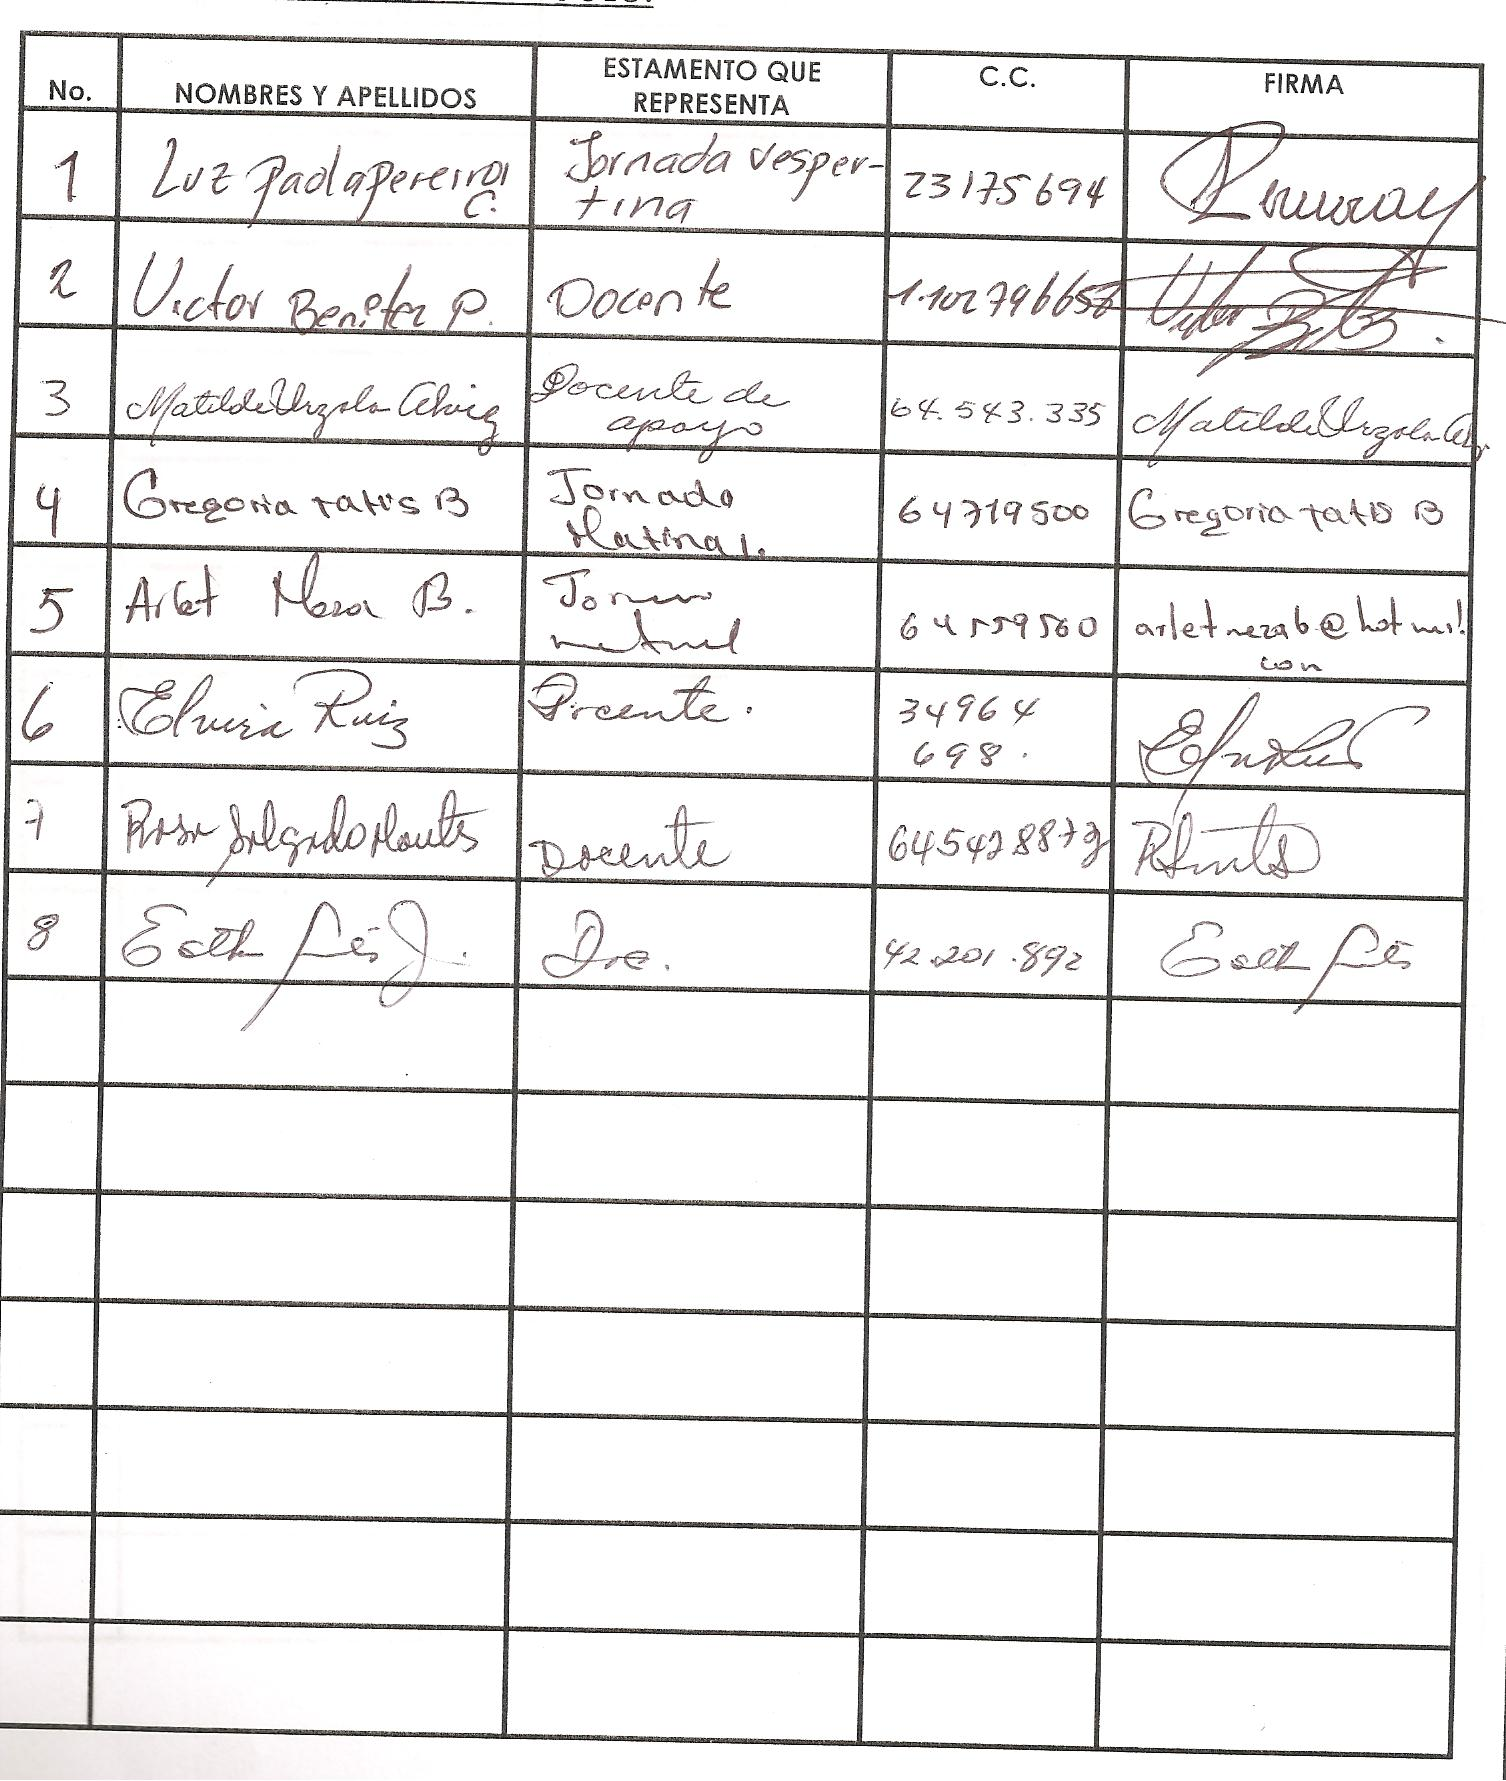 No.
NOMBRES Y APELLIDOS
ESTAMENTO QUE
REPRESENTA
C.C.
FIRMA
1
Luz Paola Pereira
C.
Jornada vesper-
tina
23175694
2
Victor Benitez P.
Docente
1.102796656
3
Matilde Urzola Alviz
Docente de
apoyo
64.543.335
Matilde Urzola
4
Gregoria tatis B
Jornada
Matinal.
64719500
Gregoria tatis B
5
Arlet Meza B.
64559560
arletmezab@hotmail
com
6
Elvira Ruiz
Docente.
34964
698.
7
Rosa Salgado Montes
Docente
8
Doc.
42.201.892